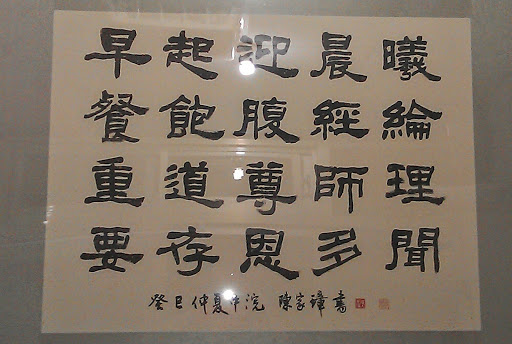 早起迎晨曦
餐飽腹經綸
重道尊師理
要存恩多聞
癸巳仲夏中浣 陳家璋書